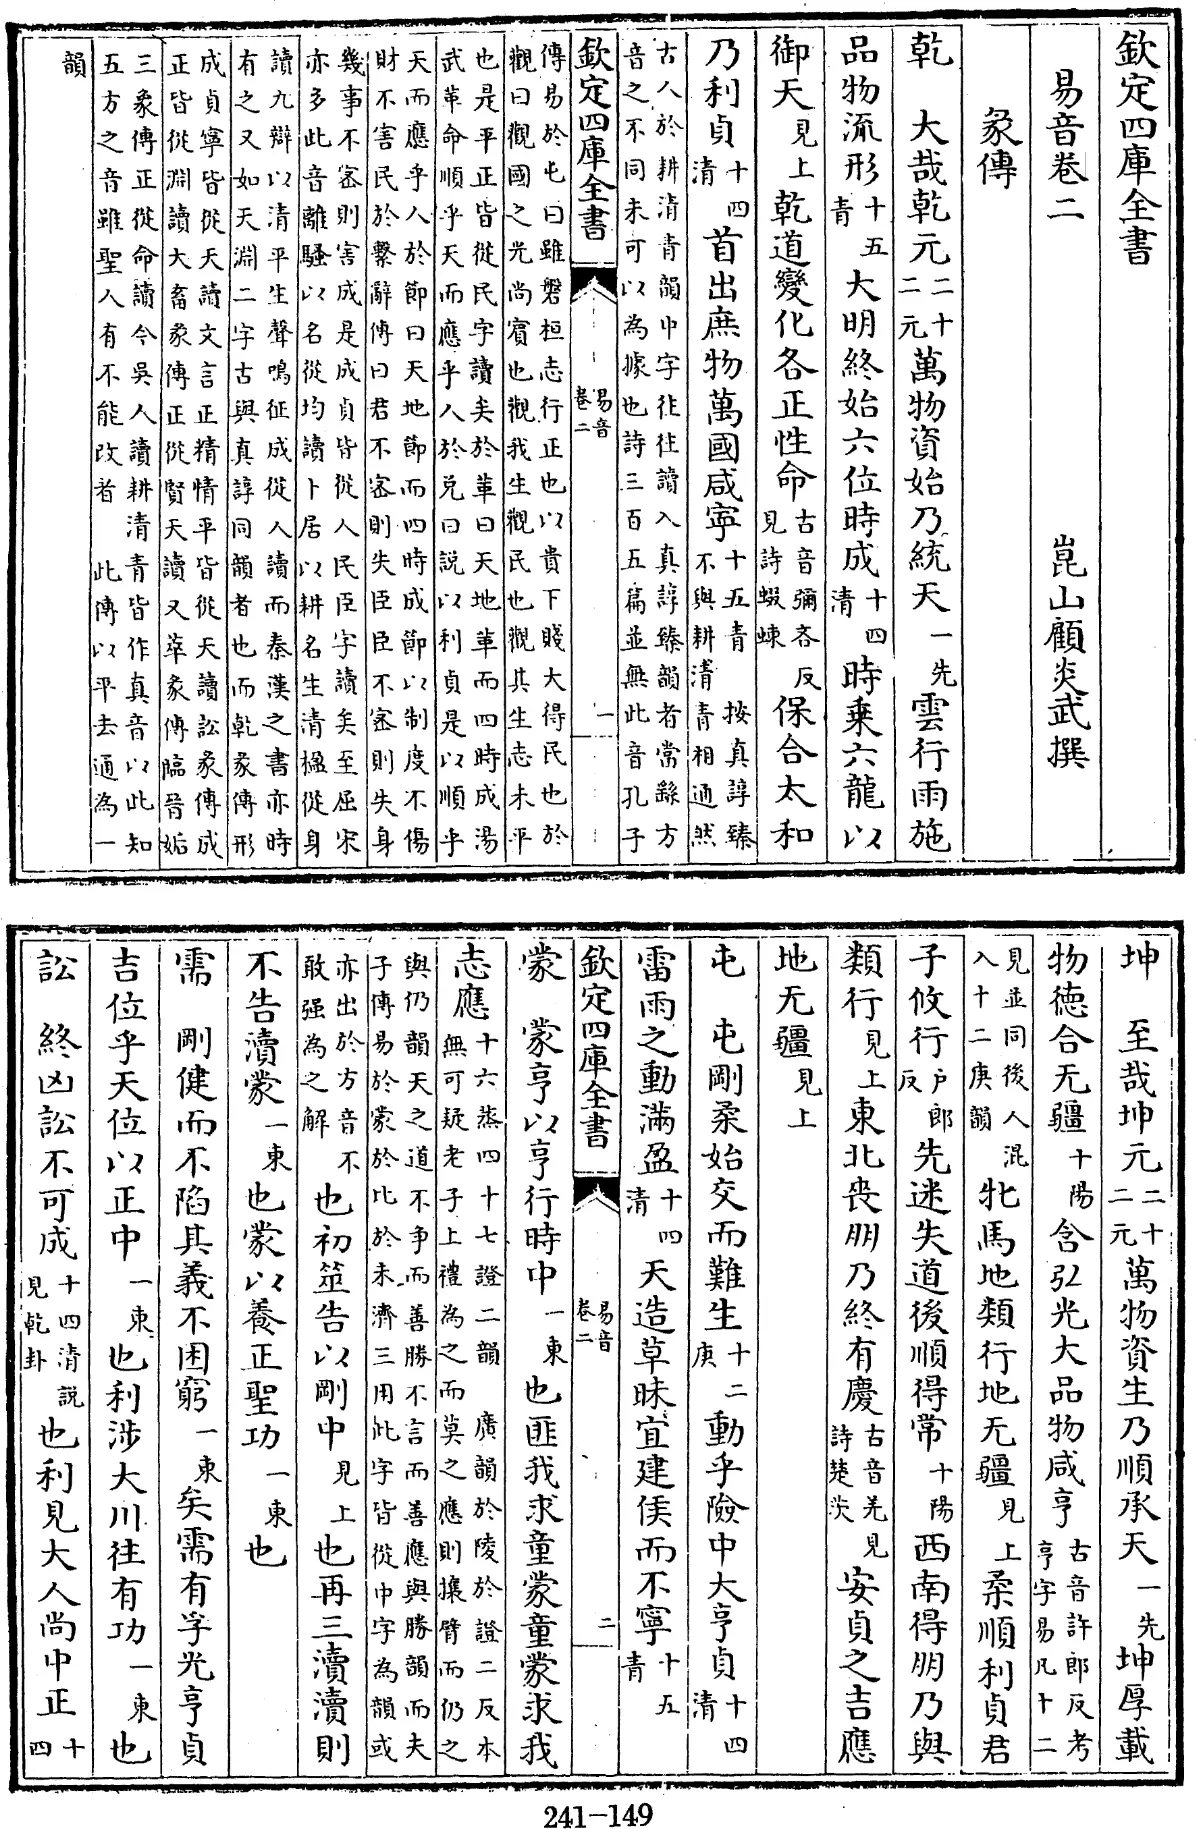 欽定四庫全書
易音卷二　崑山顧炎武撰
彖傳
乾　大哉乾元二十二元萬物資始乃統天一先雲行雨施
品物流形十五青大明終始六位時成十四清時乗六龍以
御天見上乾道變化各正性命古音彌吝反見詩蝃蝀保合太和
乃利貞十四清首出庶物萬國咸寧十五青　按真諄臻不與耕清青相通然
古人於耕清青韻中字往往讀入真諄臻韻者當繇方
音之不同未可以為據也詩三百五篇並無此音孔子
欽定四庫全書　易音卷二　一
傳易於屯曰雖磐桓志行正也以貴下賤大得民也於
觀曰觀國之光尚賓也觀我生觀民也觀其生志未平
也是平正皆從民字讀矣於革曰天地革而四時成湯
武革命順乎天而應乎人於兌曰說以利貞是以順乎
天而應乎人於節曰天地節而四時成節以制度不傷
財不害民於繫辭傳曰君不密則失臣臣不密則失身
幾事不密則害成是成貞皆從人民臣字讀矣至屈宋
亦多此音離騷以名從均讀卜居以耕名生清楹從身
讀九辯以清平生聲鳴征成從人讀而秦漢之書亦時
有之又如天淵二字古與真諄同韻者也而乾彖傳形
成貞寧皆從天讀文言正精情平皆從天讀訟彖傳成
正皆從淵讀大畜彖傳正從賢天讀又萃彖傳臨晉姤
三彖傳正從命讀今吳人讀耕清青皆作真音以此知
五方之音雖聖人有不能改者　此傳以平去通為一
韻
坤　至哉坤元二十二元萬物資生乃順承天一先坤厚載
物德合无疆十陽含弘光大品物咸亨古音許郎反考亨字易凡十二
見並同後人混入十二庚韻牝馬地類行地无疆見上柔順利貞君
子攸行戶郎反先迷失道後順得常十陽西南得朋乃與
類行見上東北喪朋乃終有慶古音羌見詩楚茨安貞之吉應
地无疆見上
屯　屯剛柔始交而難生十二庚動乎險中大亨貞十四清
雷雨之動滿盈十四清天造草昧宜建侯而不寧十五青
欽定四庫全書　易音卷二　二
蒙　蒙亨以亨行時中一東也匪我求童蒙童蒙求我
志應十六蒸四十七證二韻　廣韻於陵於證二反本無可疑老子上禮為之而莫之應則攘臂而仍之
與仍韻天之道不爭而善勝不言而善應與勝韻而夫
子傳易於蒙於比於未濟三用此字皆從中字為韻或
亦出於方音不敢强為之解也初筮告以剛中見上也再三瀆瀆則
不告瀆蒙一東也蒙以養正聖功一東也
需　剛健而不陷其義不困窮一東矣需有孚光亨貞
吉位乎天位以正中一東也利涉大川往有功一東也
訟　終凶訟不可成十四清說見乾卦也利見大人尚中正十四
241-149